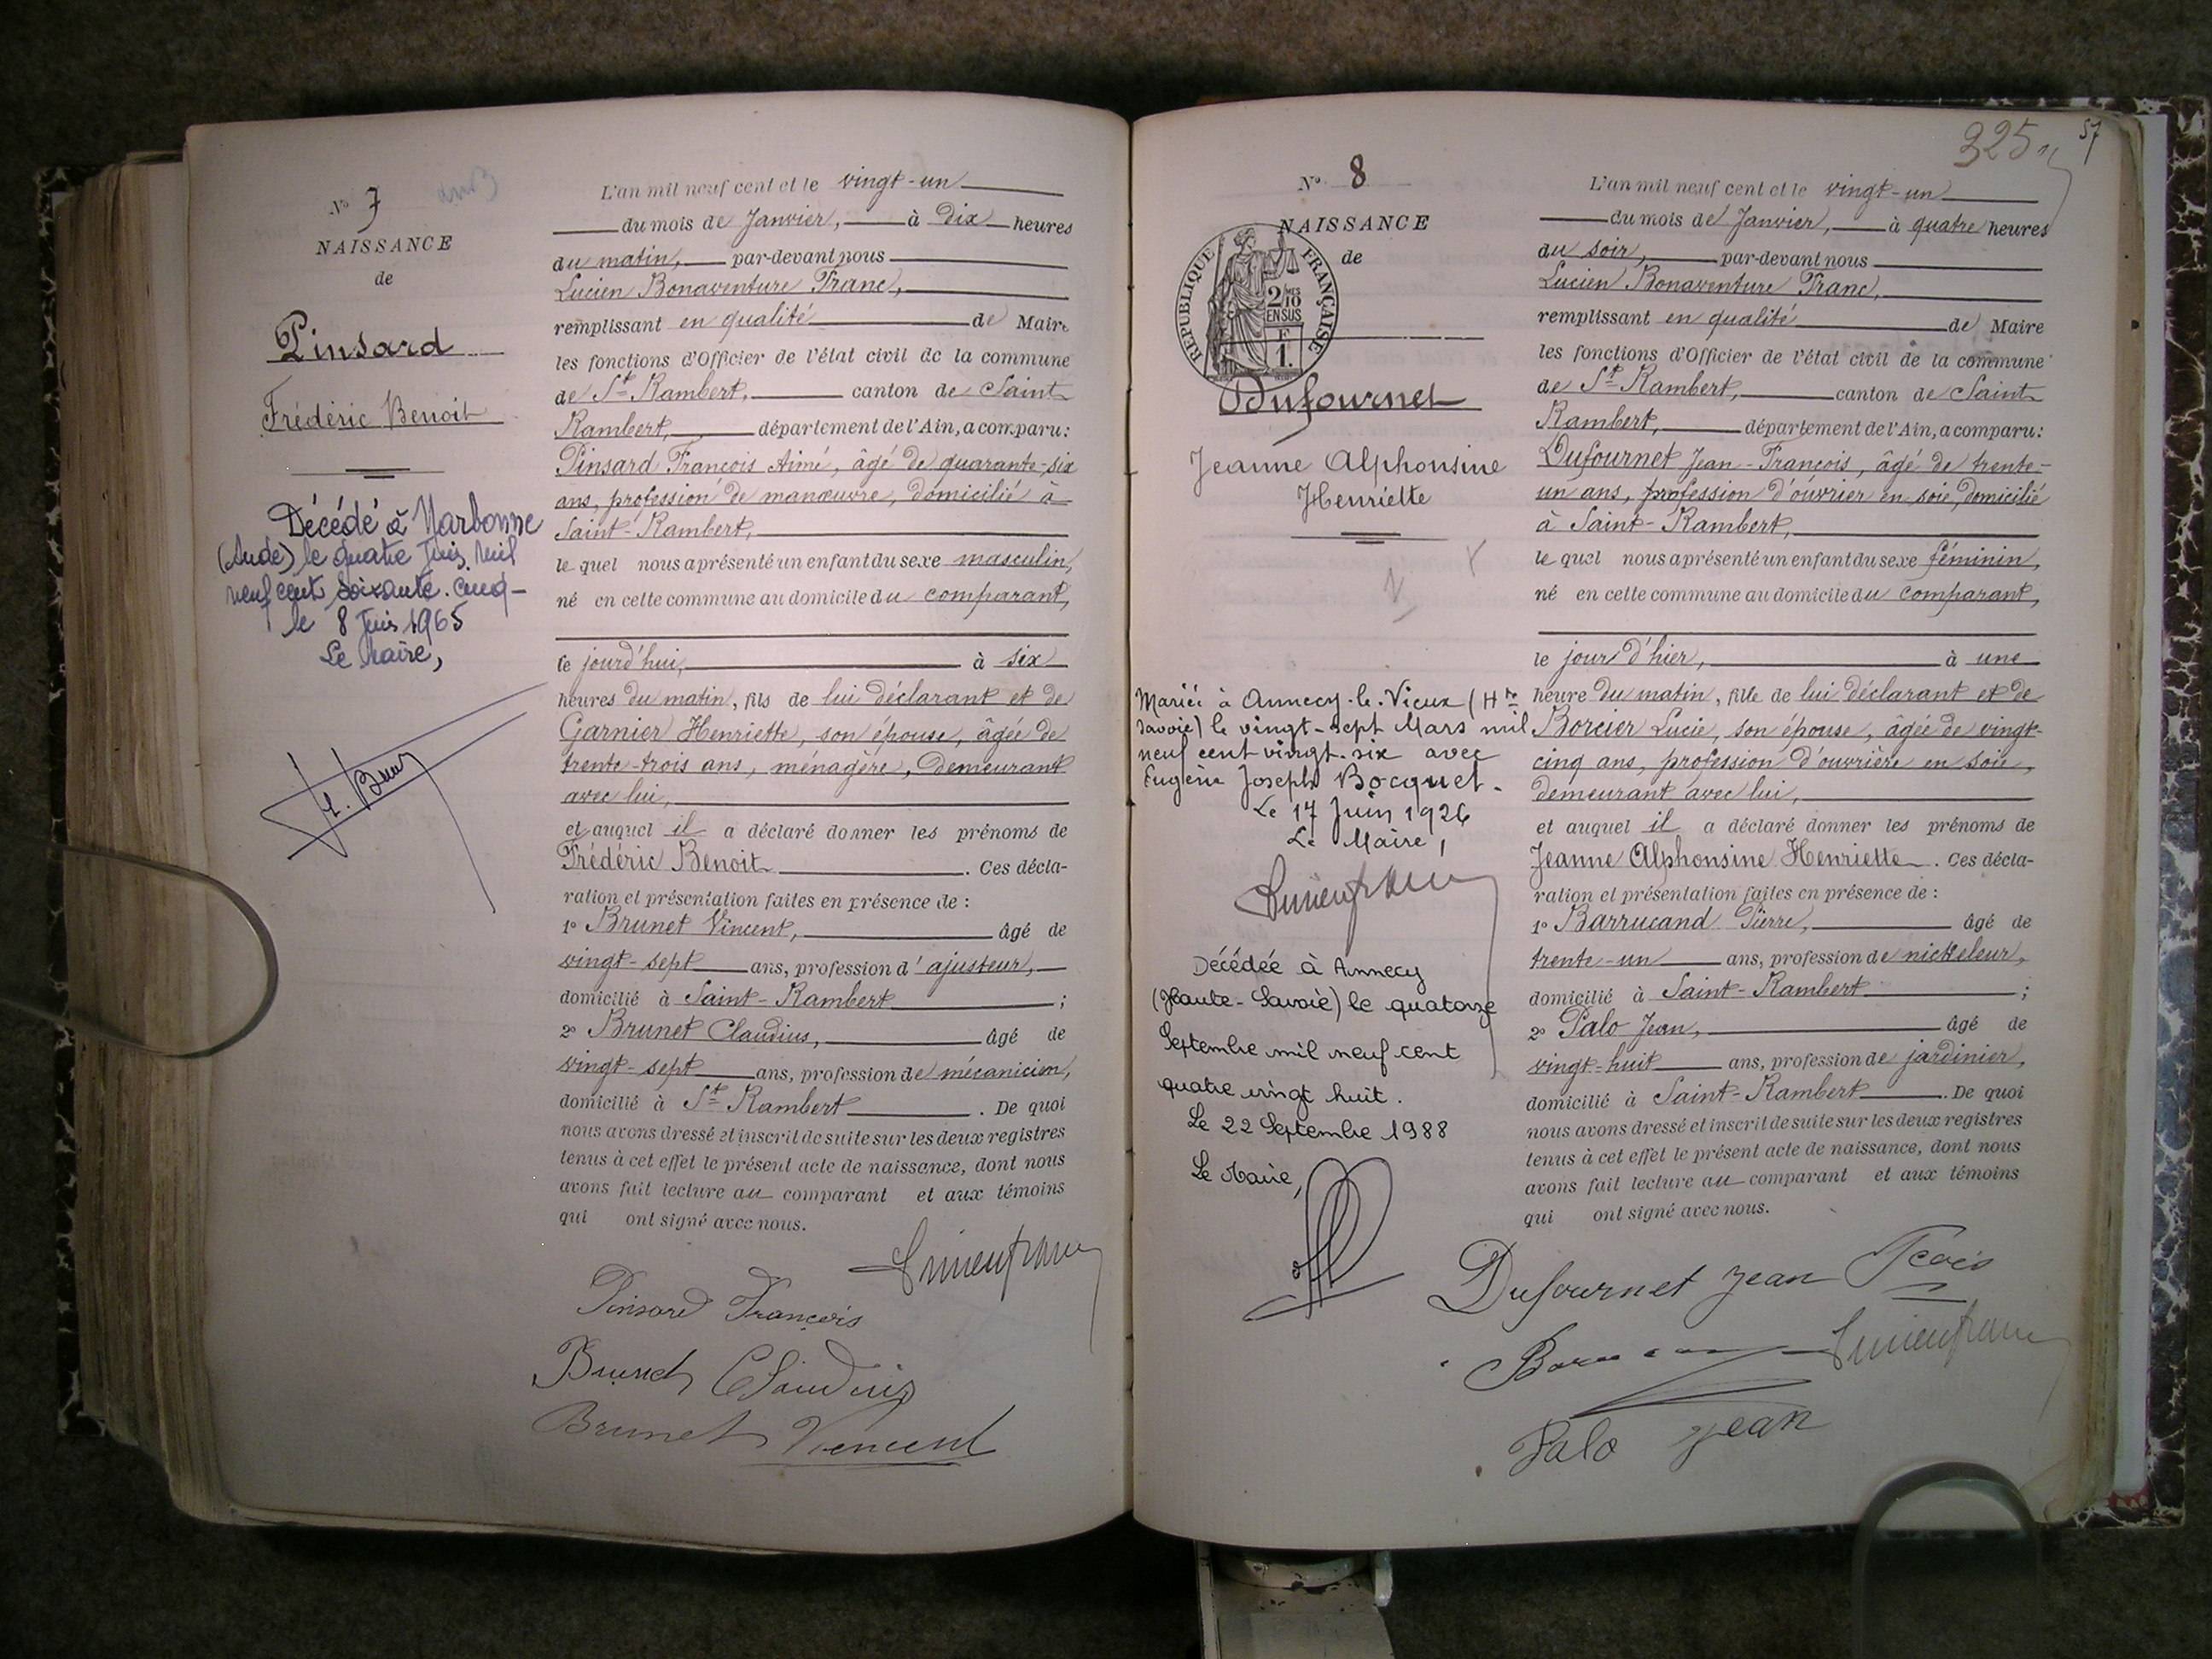 N° 7
NAISSANCE
de
Pinsard
Frédéric Benoit
Décédé à Narbonne
(Aude) le quatre Juin mil
neuf cent soixante-cinq-
le 8 Juin 1965
Le Maire,
L'an mil neuf cent et le vingt-un
du mois de Janvier, à Dix heures
du matin, par-devant nous
Lucien Bonaventure Franc,
remplissant en qualité de Maire
les fonctions d'Officier de l'état civil de la commune
de St Rambert, canton de Saint
Rambert, département de l'Ain, a comparu:
Pinsard François Aimé, âgé de quarante-six
ans, profession de manœuvre, domicilié à
Saint-Rambert,
le quel nous a présenté un enfant du sexe masculin,
né en cette commune au domicile du comparant,
le jourd'hui, à six
heures du matin, fils de lui déclarant et de
Garnier Henriette, son épouse, âgée de
trente-trois ans, ménagère, demeurant
avec lui,
et auquel il a déclaré donner les prénoms de
Frédéric Benoit. Ces décla-
ration et présentation faites en présence de :
1° Brunet Vincent, âgé de
vingt-sept ans, profession d'ajusteur,
domicilié à Saint-Rambert ;
2° Brunet Claudius, âgé de
vingt-sept ans, profession de mécanicien,
domicilié à St Rambert. De quoi
nous avons dressé et inscrit de suite sur les deux registres
tenus à cet effet le présent acte de naissance, dont nous
avons fait lecture au comparant et aux témoins
qui ont signé avec nous.
Lucien franc
Pinsard François
Brunet Claudius
Brunet Vincent
325
57
N° 8
NAISSANCE
de
REPUBLIQUE FRANÇAISE
2/10 MES
EN SUS
F
1.
Dufournet
Jeanne Alphonsine
Henriette
Mariée à Annecy-le-Vieux (Hte
Savoie) le vingt-sept Mars mil
neuf cent vingt-six avec
Eugène Joseph Bocquet.
Le 17 Juin 1926
Le Maire,
Lucien franc
Décédée à Annecy
(Haute-Savoie) le quatorze
Septembre mil neuf cent
quatre vingt huit.
Le 22 Septembre 1988
Le Maire,
L'an mil neuf cent et le vingt-un
du mois de Janvier, à quatre heures
du soir, par-devant nous
Lucien Bonaventure Franc,
remplissant en qualité de Maire
les fonctions d'Officier de l'état civil de la commune
de St Rambert, canton de Saint
Rambert, département de l'Ain, a comparu:
Dufournet Jean-François, âgé de trente-
un ans, profession d'ouvrier en soie, domicilié
à Saint-Rambert,
le quel nous a présenté un enfant du sexe féminin,
né en cette commune au domicile du comparant,
le jour d'hier, à une
heure du matin, fille de lui déclarant et de
Borcier Lucie, son épouse, âgée de vingt-
cinq ans, profession d'ouvrière en soie,
demeurant avec lui,
et auquel il a déclaré donner les prénoms de
Jeanne Alphonsine Henriette. Ces décla-
ration et présentation faites en présence de :
1° Barrucand Pierre, âgé de
trente-un ans, profession de nickeleur,
domicilié à Saint-Rambert ;
2° Palo Jean, âgé de
vingt-huit ans, profession de jardinier,
domicilié à Saint-Rambert. De quoi
nous avons dressé et inscrit de suite sur les deux registres
tenus à cet effet le présent acte de naissance, dont nous
avons fait lecture au comparant et aux témoins
qui ont signé avec nous.
Dufournet Jean Fcois
Lucien franc
Palo Jean